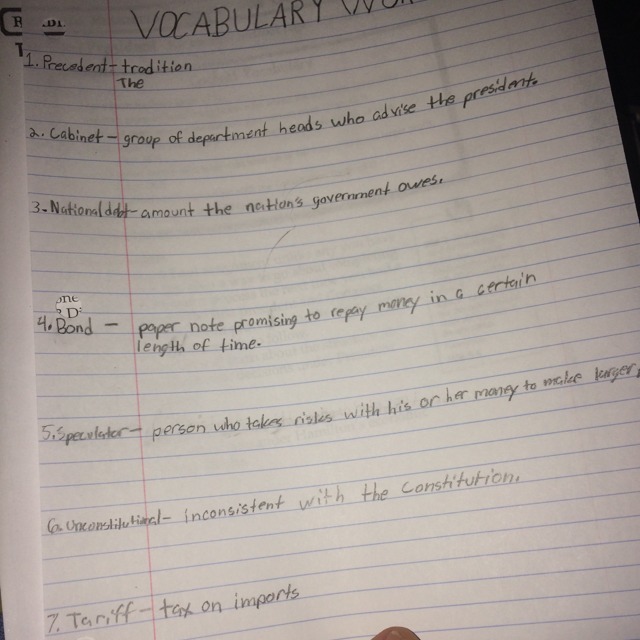 VOCABULARY
1. Precedent - tradition
The
2. Cabinet - group of department heads who advise the president.
3. National debt - amount the nation's government owes.
4. Bond - paper note promising to repay money in a certain
length of time.
5. Speculator - person who takes risks with his or her money to make larger
6. Unconstitutional - inconsistent with the constitution.
7. Tariff - tax on imports